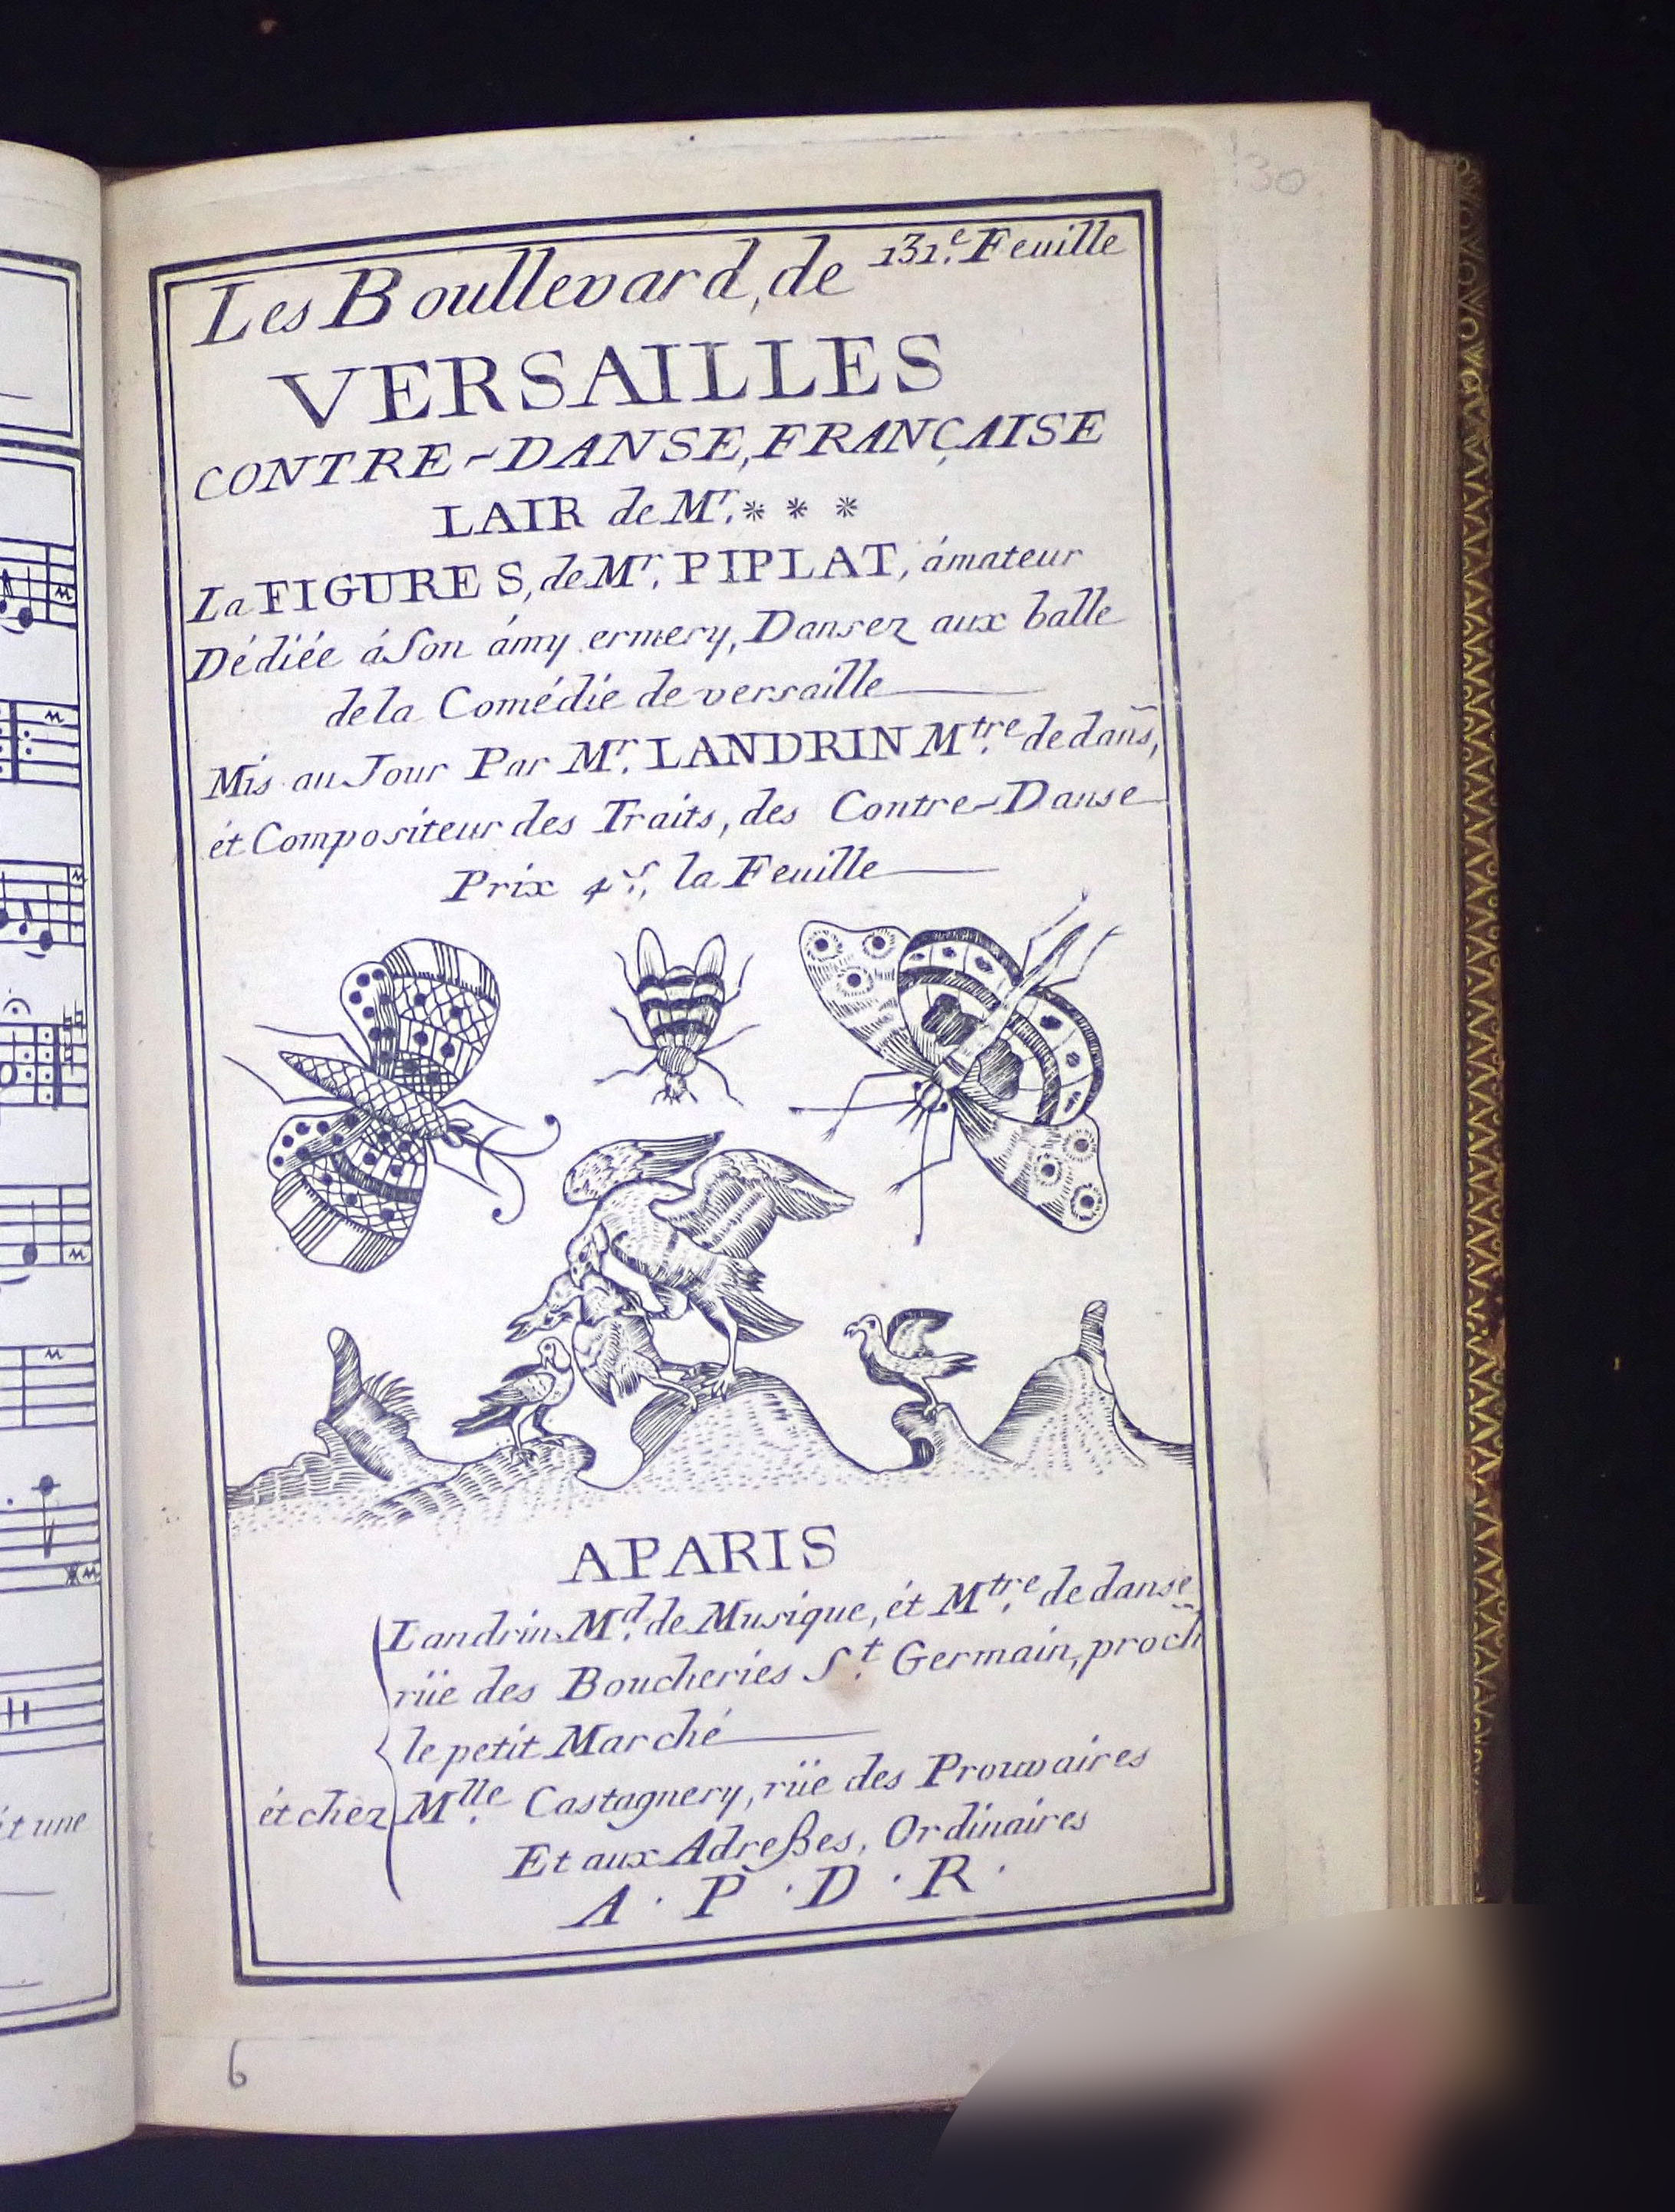 130
131.e Feuille
Les Boullevard, de
VERSAILLES
CONTRE-DANSE, FRANÇAISE
LAIR de Mr. * * *
La FIGURE S, de Mr. PIPLAT, ámateur
Dédiée á Son ámy ermery, Dansez aux balle
de la Comédie de versaille
Mis au Jour Par Mr. LANDRIN Mtre. de dans̃,
ét Compositeur des Traits, des Contre-Danse
Prix 4 s. la Feuille
APARIS
Landrin Md. de Musique, ét Mtre. de danse
rüe des Boucheries St. Germain, proch̃
le petit Marché
ét chez Mlle. Castagnery, rüe des Prouvaires
Et aux Adreßes, Ordinaires
A · P · D · R ·
6
ét une